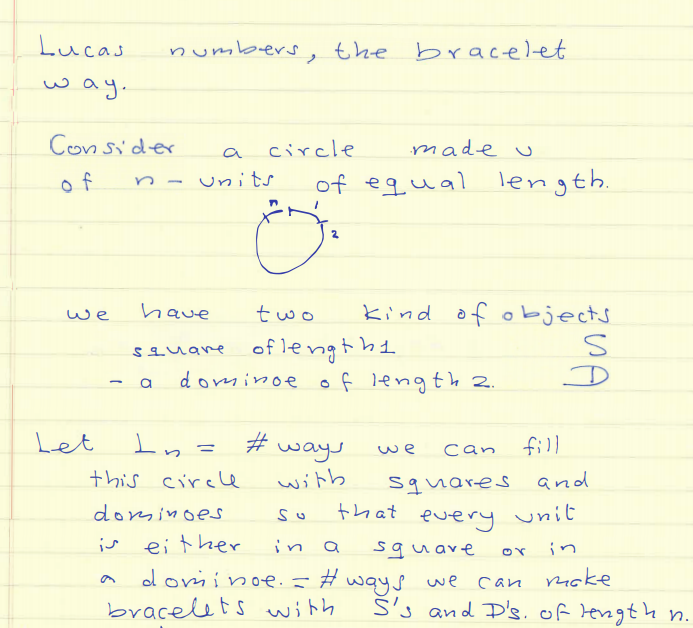 Lucas numbers, the bracelet
way.
Consider a circle made u
of n-units of equal length.
n 1
2
we have two kind of objects
square of length 1 S
- a dominoe of length 2. D
Let Ln = # ways we can fill
this circle with squares and
dominoes so that every unit
is either in a square or in
a dominoe. = # ways we can make
bracelets with S's and D's. of length n.